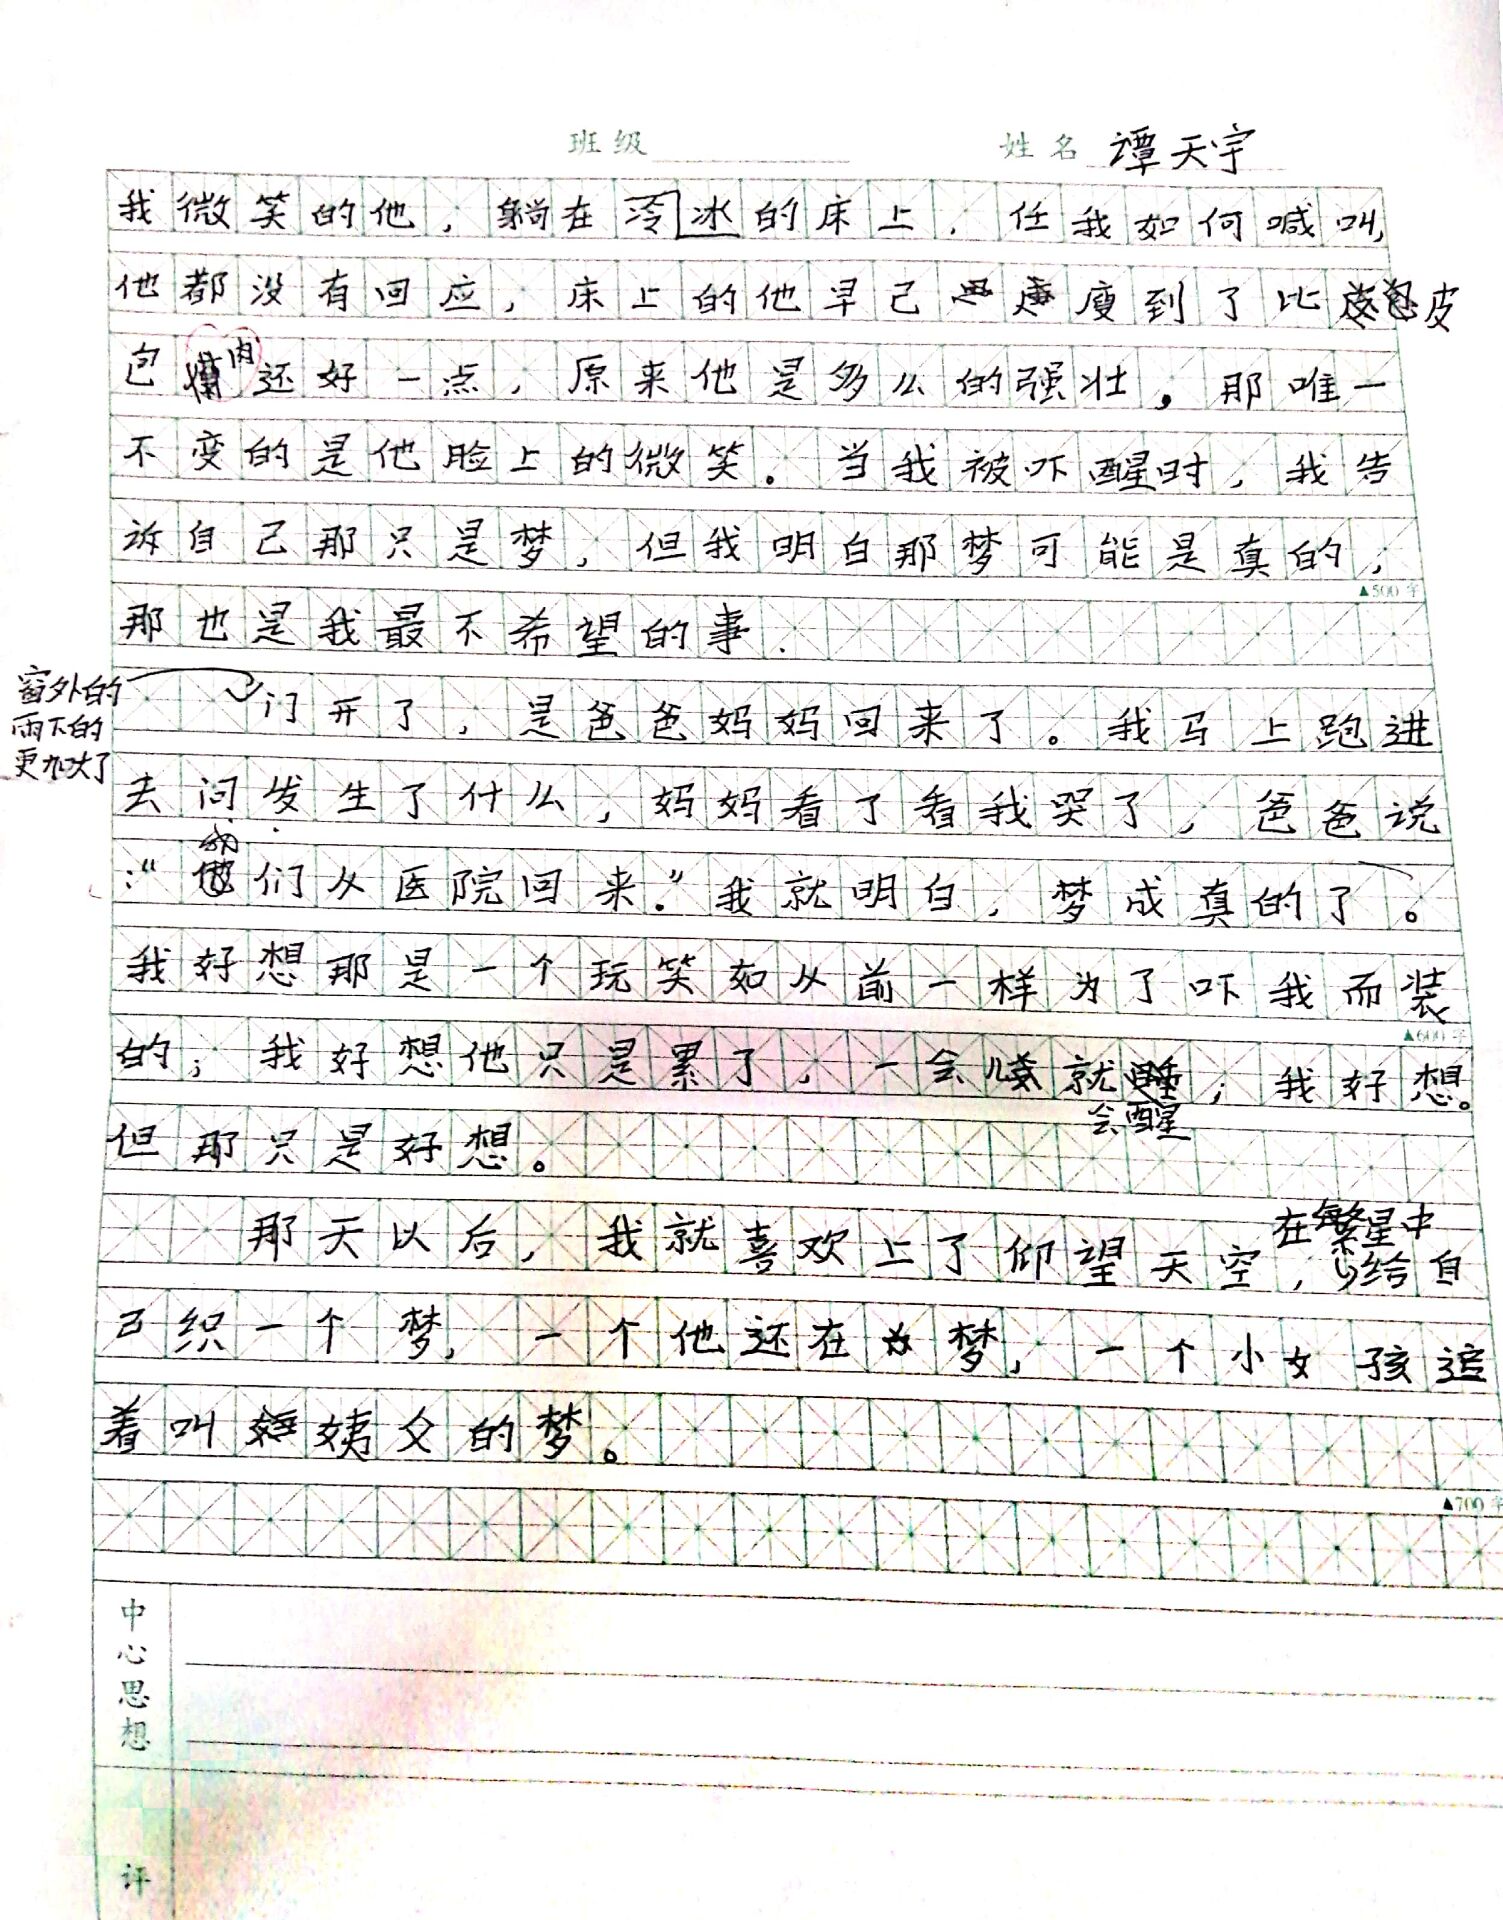 班级 姓名 谭天宇
我微笑的他，躺在冷冰的床上，任我如何喊叫，
他都没有回应，床上的他早已瘦到了比皮
包肉还好一点，原来他是多么的强壮，那唯一
不变的是他脸上的微笑。当我被吓醒时，我告
诉自己那只是梦，但我明白那梦可能是真的，
▲500字
那也是我最不希望的事.
窗外的
雨下的
更加大了
门开了，是爸爸妈妈回来了。我马上跑进
去问发生了什么，妈妈看了看我哭了，爸爸说
：“我们从医院回来.”我就明白，梦成真的了。
我好想那是一个玩笑如从前一样为了吓我而装
▲600字
的；我好想他只是累了，一会儿就会醒；我好想。
但那只是好想。
那天以后，我就喜欢上了仰望天空，在繁星中给自
己织一个梦，一个他还在的梦，一个小女孩追
着叫姨父的梦。
▲700字
中心思想
评